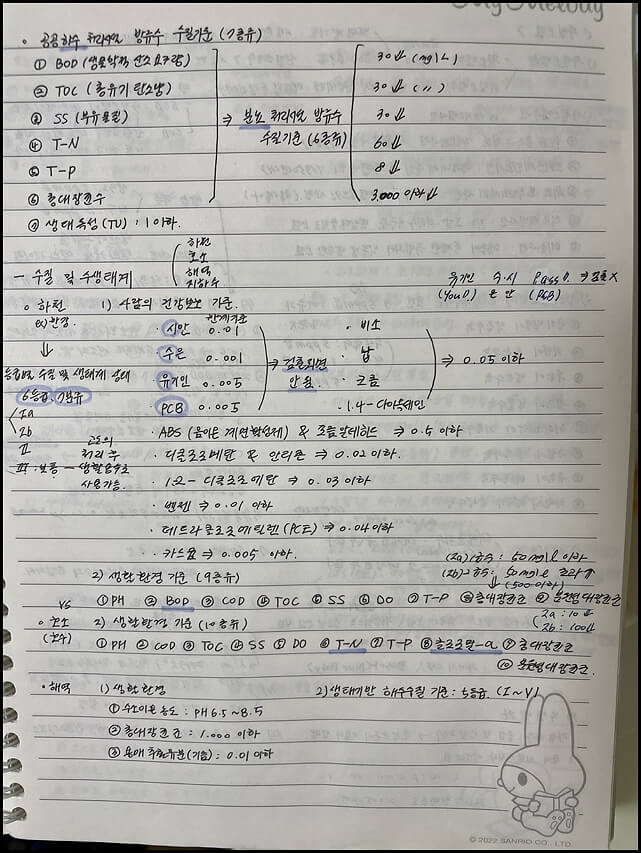 My Melody
· 공공하수 처리시설 방류수 수질기준 (7종류)
① BOD (생물학적 산소요구량) 30↓ (mg/L)
② TOC (총유기탄소량) 30↓ (〃)
③ SS (부유물질) ⇒ 분뇨 처리시설 방류수 30↓
④ T-N 수질기준 (6종류) 60↓
⑤ T-P 8↓
⑥ 총대장균수 3,000 이하↓
⑦ 생태독성(TU) : 1이하.
하천
호소
— 수질 및 수생태계 해역
지하수
유기인 수·시 Pass D. ⇒ 검출X
○ 하천 1) 사람의 건강보호 기준. 한계기준 (You D) 은 안 (PCB)
ex) 환경. · 시안 0.01 · 비소
↓ · 수은 0.001 ⇒ 검출되면 · 납 ⇒ 0.05 이하
등급별 수질 및 생태계 상태 · 유기인 0.005 안됨 · 크롬
6등급, 7분류 · PCB 0.005 · 1.4-다이옥세인
Ia
Ib · ABS (음이온 계면활성제) & 포름알데히드 ⇒ 0.5 이하
II 고도의 처리 후 · 디클로로메탄 & 안티몬 ⇒ 0.02 이하.
III : 보통 — 생활용수로 사용가능. · 1.2- 디클로로에탄 ⇒ 0.03 이하
· 벤젠 ⇒ 0.01 이하
· 테트라클로로에틸렌 (PCE) ⇒ 0.04 이하
· 카드뮴 ⇒ 0.005 이하.
(Ia) : 50 mg/L 이하
2) 생활환경 기준 (9종류) (Ib) : 50 mg/L 초과↑
↓ (500이하)
vs ① PH ② BOD ③ COD ④ TOC ⑤ SS ⑥ DO ⑦ T-P ⑧ 총대장균군 ⑨ 분원성대장균군
Ia : 10↓
Ib : 100↓
○ 호소 2) 생활환경 기준 (10종류)
(호수) ① PH ② COD ③ TOC ④ SS ⑤ DO ⑥ T-N ⑦ T-P ⑧ 클로로필-a ⑨ 총대장균군
⑩ 분원성대장균군.
· 해역 1) 생활환경 2) 생태기반 해수수질 기준 : 5등급. (I ~ V)
① 수소이온농도 : PH 6.5 ~ 8.5
② 총대장균군 : 1.000 이하
③ 용매 추출유분(기름) : 0.01 이하
© 2022 SANRIO CO., LTD.